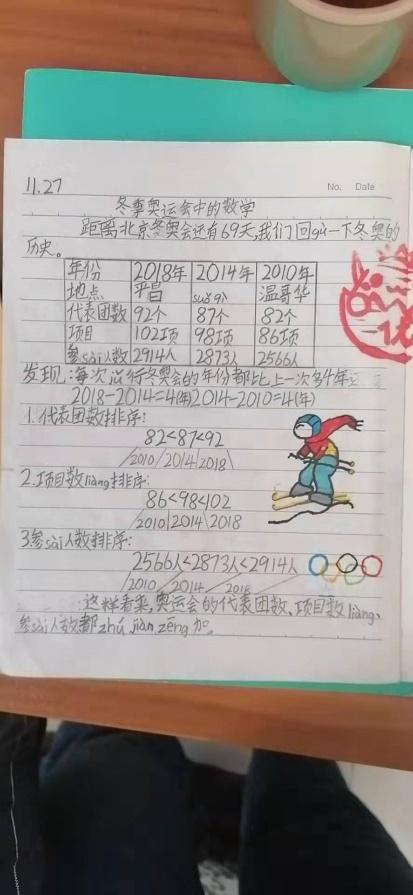 11.27
No. Date
冬季奥运会中的数学
距离北京冬奥会还有69天,我们回gù一下冬奥的
历史。
年份 2018年 2014年 2010年
地点 平昌 suǒ qì 温哥华
代表团数 92个 87个 82个
项目 102项 98项 86项
参sài人数 2914人 2873人 2566人
发现:每次举行冬奥会的年份都比上一次多4年
2018-2014=4(年)2014-2010=4(年)
1.代表团数排序:
82<87<92
2010 2014 2018
2.项目数liàng排序:
86<98<102
2010 2014 2018
3.参sài人数排序:
2566人<2873人<2914人
2010 2014 2018
这样看来,奥运会的代表团数、项目数liàng、
参sài人数都zhú jiàn zēng加。